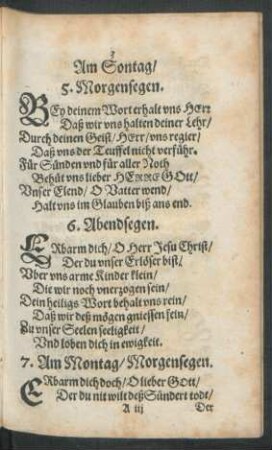 Am Sontag/
5. Morgensegen.
BEy deinem Wort erhalt vns HErr
Daß wir vns halten deiner Lehr/
Durch deinen Geist/HErr/vns regier/
Daß vns der Teuffel nicht verführ.
Für Sünden vnd für aller Noth
Behüt vns lieber HERRE GOtt/
Vnser Elend/ O Vatter wend/
Halt vns im Glauben biß ans end.
6. Abendsegen.
ERbarm dich/ O Herr Jesu Christ/
Der du vnser Erlöser bist/
Vber vns arme Kinder klein/
Die wir noch vnerzogen sein/
Dein heiligs Wort behalt vns rein/
Daß wir deß mögen gniessen sein/
Zu vnser Seelen seeligkeit/
Vnd loben dich in ewigkeit.
7. Am Montag/ Morgensegen.
ERbarm dich doch/ O lieber GOtt/
Der du nit wilt deß Sünders todt/
A iij Der